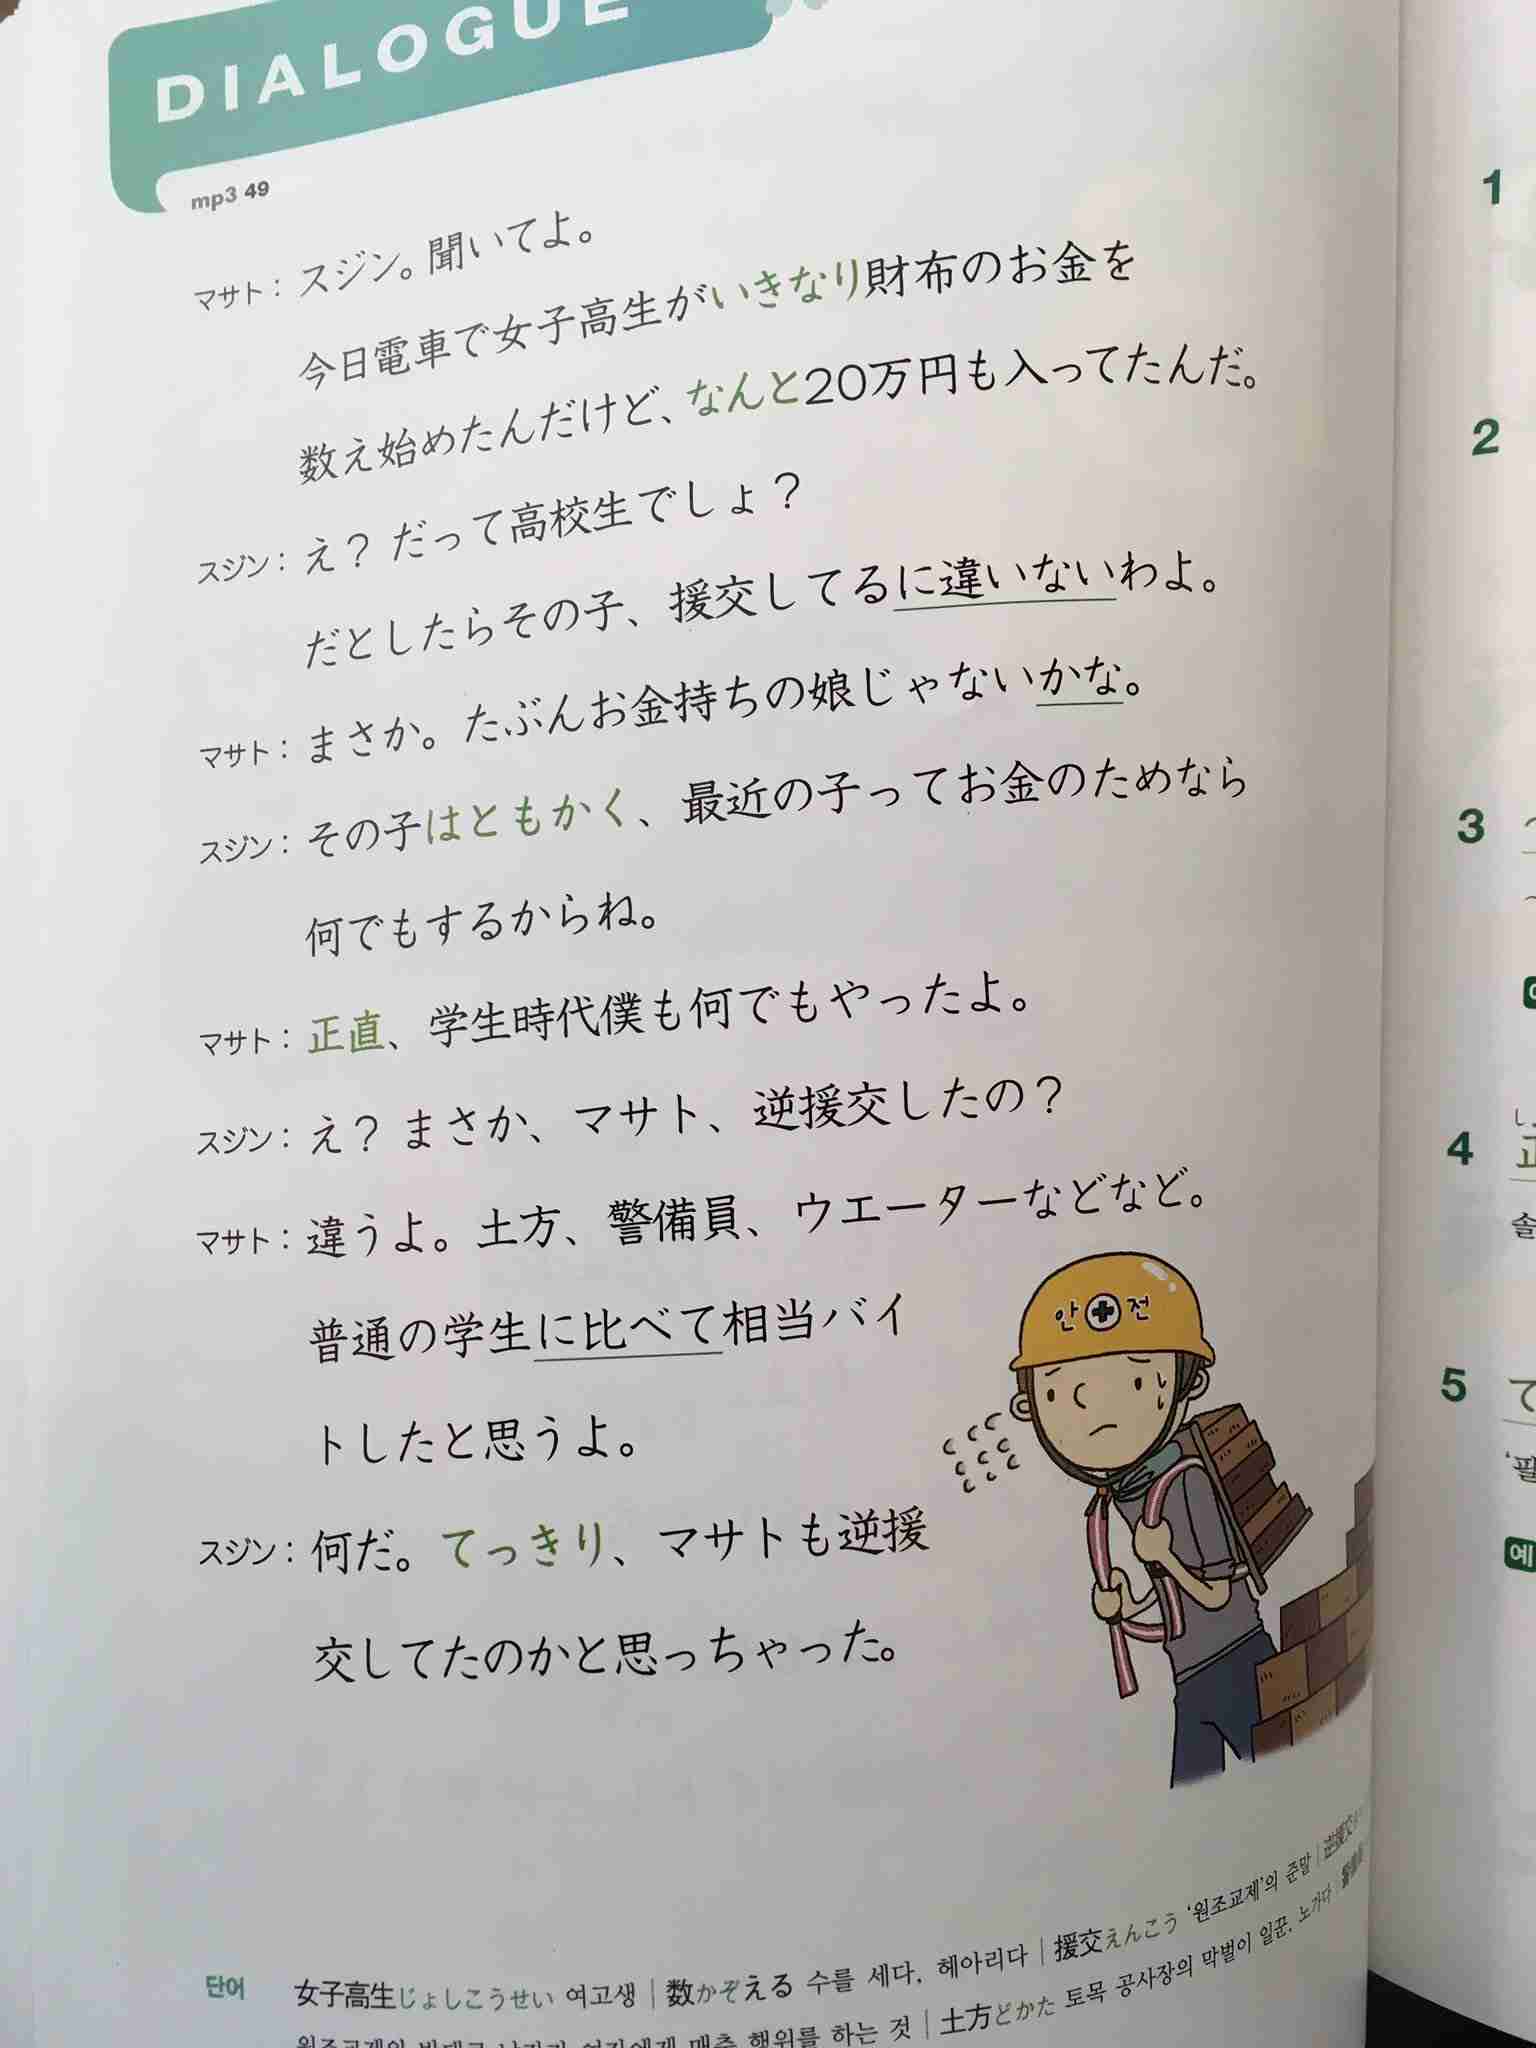 DIALOGUE
mp3 49
マサト： スジン。聞いてよ。
今日電車で女子高生がいきなり財布のお金を
数え始めたんだけど、なんと20万円も入ってたんだ。
スジン： え？ だって高校生でしょ？
だとしたらその子、援交してるに違いないわよ。
マサト： まさか。たぶんお金持ちの娘じゃないかな。
スジン： その子はともかく、最近の子ってお金のためなら
何でもするからね。
マサト： 正直、学生時代僕も何でもやったよ。
スジン： え？ まさか、マサト、逆援交したの？
マサト： 違うよ。土方、警備員、ウエーターなどなど。
普通の学生に比べて相当バイ
トしたと思うよ。
スジン： 何だ。てっきり、マサトも逆援
交してたのかと思っちゃった。
안 전
단어 女子高生じょしこうせい 여고생 | 数かぞえる 수를 세다, 헤아리다 | 援交えんこう '원조교제'의 준말 | 逆援交
행위를 하는 것 | 土方どかた 토목 공사장의 막벌이 일꾼, 노가다
1
2
3
4
솔
5
て
예